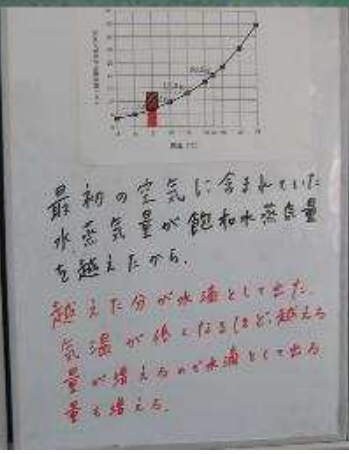 最初の空気に含まれていた
水蒸気量が飽和水蒸気量
を越えたから.
越えた分が水滴として出た.
気温が低くなるほど,越える
量が増えるので水滴として出る
量も増える.